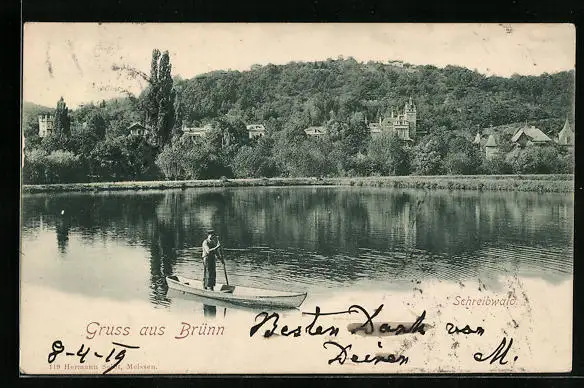 Schreibwald.
Gruss aus Brünn
Besten Dank von
Deiner M.
8-4-
119 Hermann Meissen.